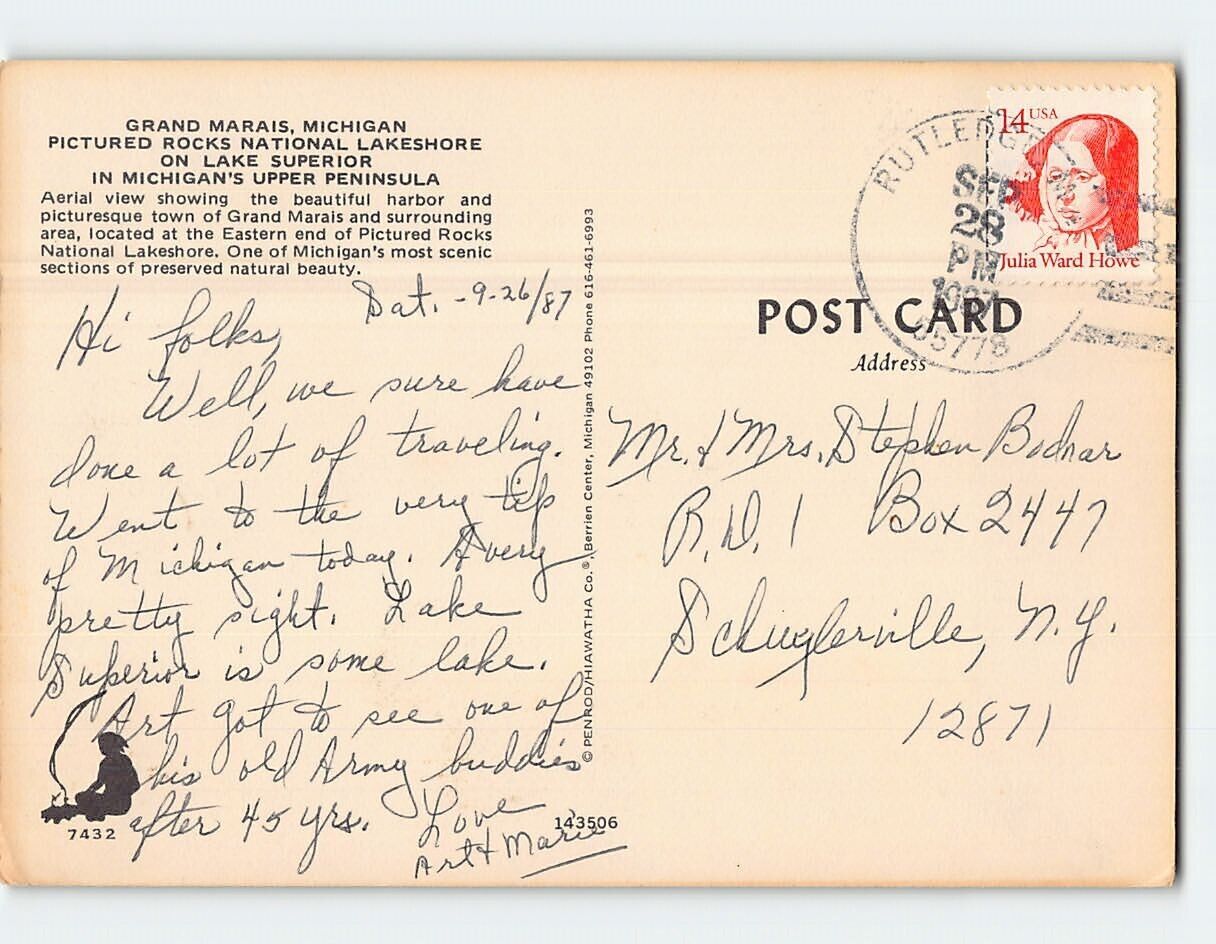 GRAND MARAIS, MICHIGAN
PICTURED ROCKS NATIONAL LAKESHORE
ON LAKE SUPERIOR
IN MICHIGAN'S UPPER PENINSULA
Aerial view showing the beautiful harbor and
picturesque town of Grand Marais and surrounding
area, located at the Eastern end of Pictured Rocks
National Lakeshore. One of Michigan's most scenic
sections of preserved natural beauty.
Sat. - 9-26/87
Hi folks,
Well, we sure have
done a lot of traveling.
Went to the very tip
of Michigan today. A very
pretty sight. Lake
Superior is some lake.
Art got to see one of
his old Army buddies
after 45 yrs.
Love
Art & Marie
7432
143506
© PENROD/HIAWATHA CO.®, Berrien Center, Michigan 49102 Phone 616-461-6993
14 USA
Julia Ward Howe
RUTLEDGE
SEP
28
PM
1987
POST CARD
Address
Mr. & Mrs. Stephen Bodnar
R.D. 1 Box 2447
Schuylerville, N.Y.
12871